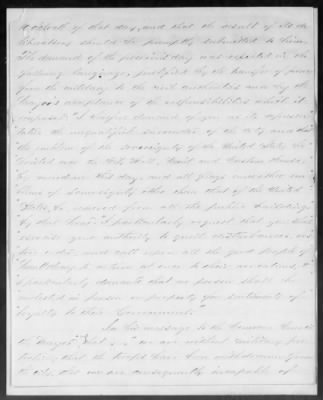 o'clock of that day, and that the result of its de-
liberations should be promptly submitted to him.
The demand of the previous day was repeated in the
following language, justified by the transfer of power
from the military to the civil authorities and by the
Mayor's acceptance of the responsibilities which it
imposed: "I therefore demand of you as its represen-
tative the unqualified surrender of the city and that
the emblem of the sovereignty of the United States be
hoisted over the City Hall, Mint and Custom House,
by meridian this day, and all flags and other em-
blems of sovereignty other than that of the United
States, be removed from all the public buildings
by that hour. I particularly request that you shall
exercise your authority to quell disturbances, re-
store order, and call upon all the good people of
New Orleans to return at once to their vocations, &
I particularly demand that no person shall be
molested in person or property for sentiments of
loyalty to their Government."
In his message to the Common Council
the Mayor "that we are without military pro-
tection, that the troops have been withdrawn from
the city, that we are consequently incapable of